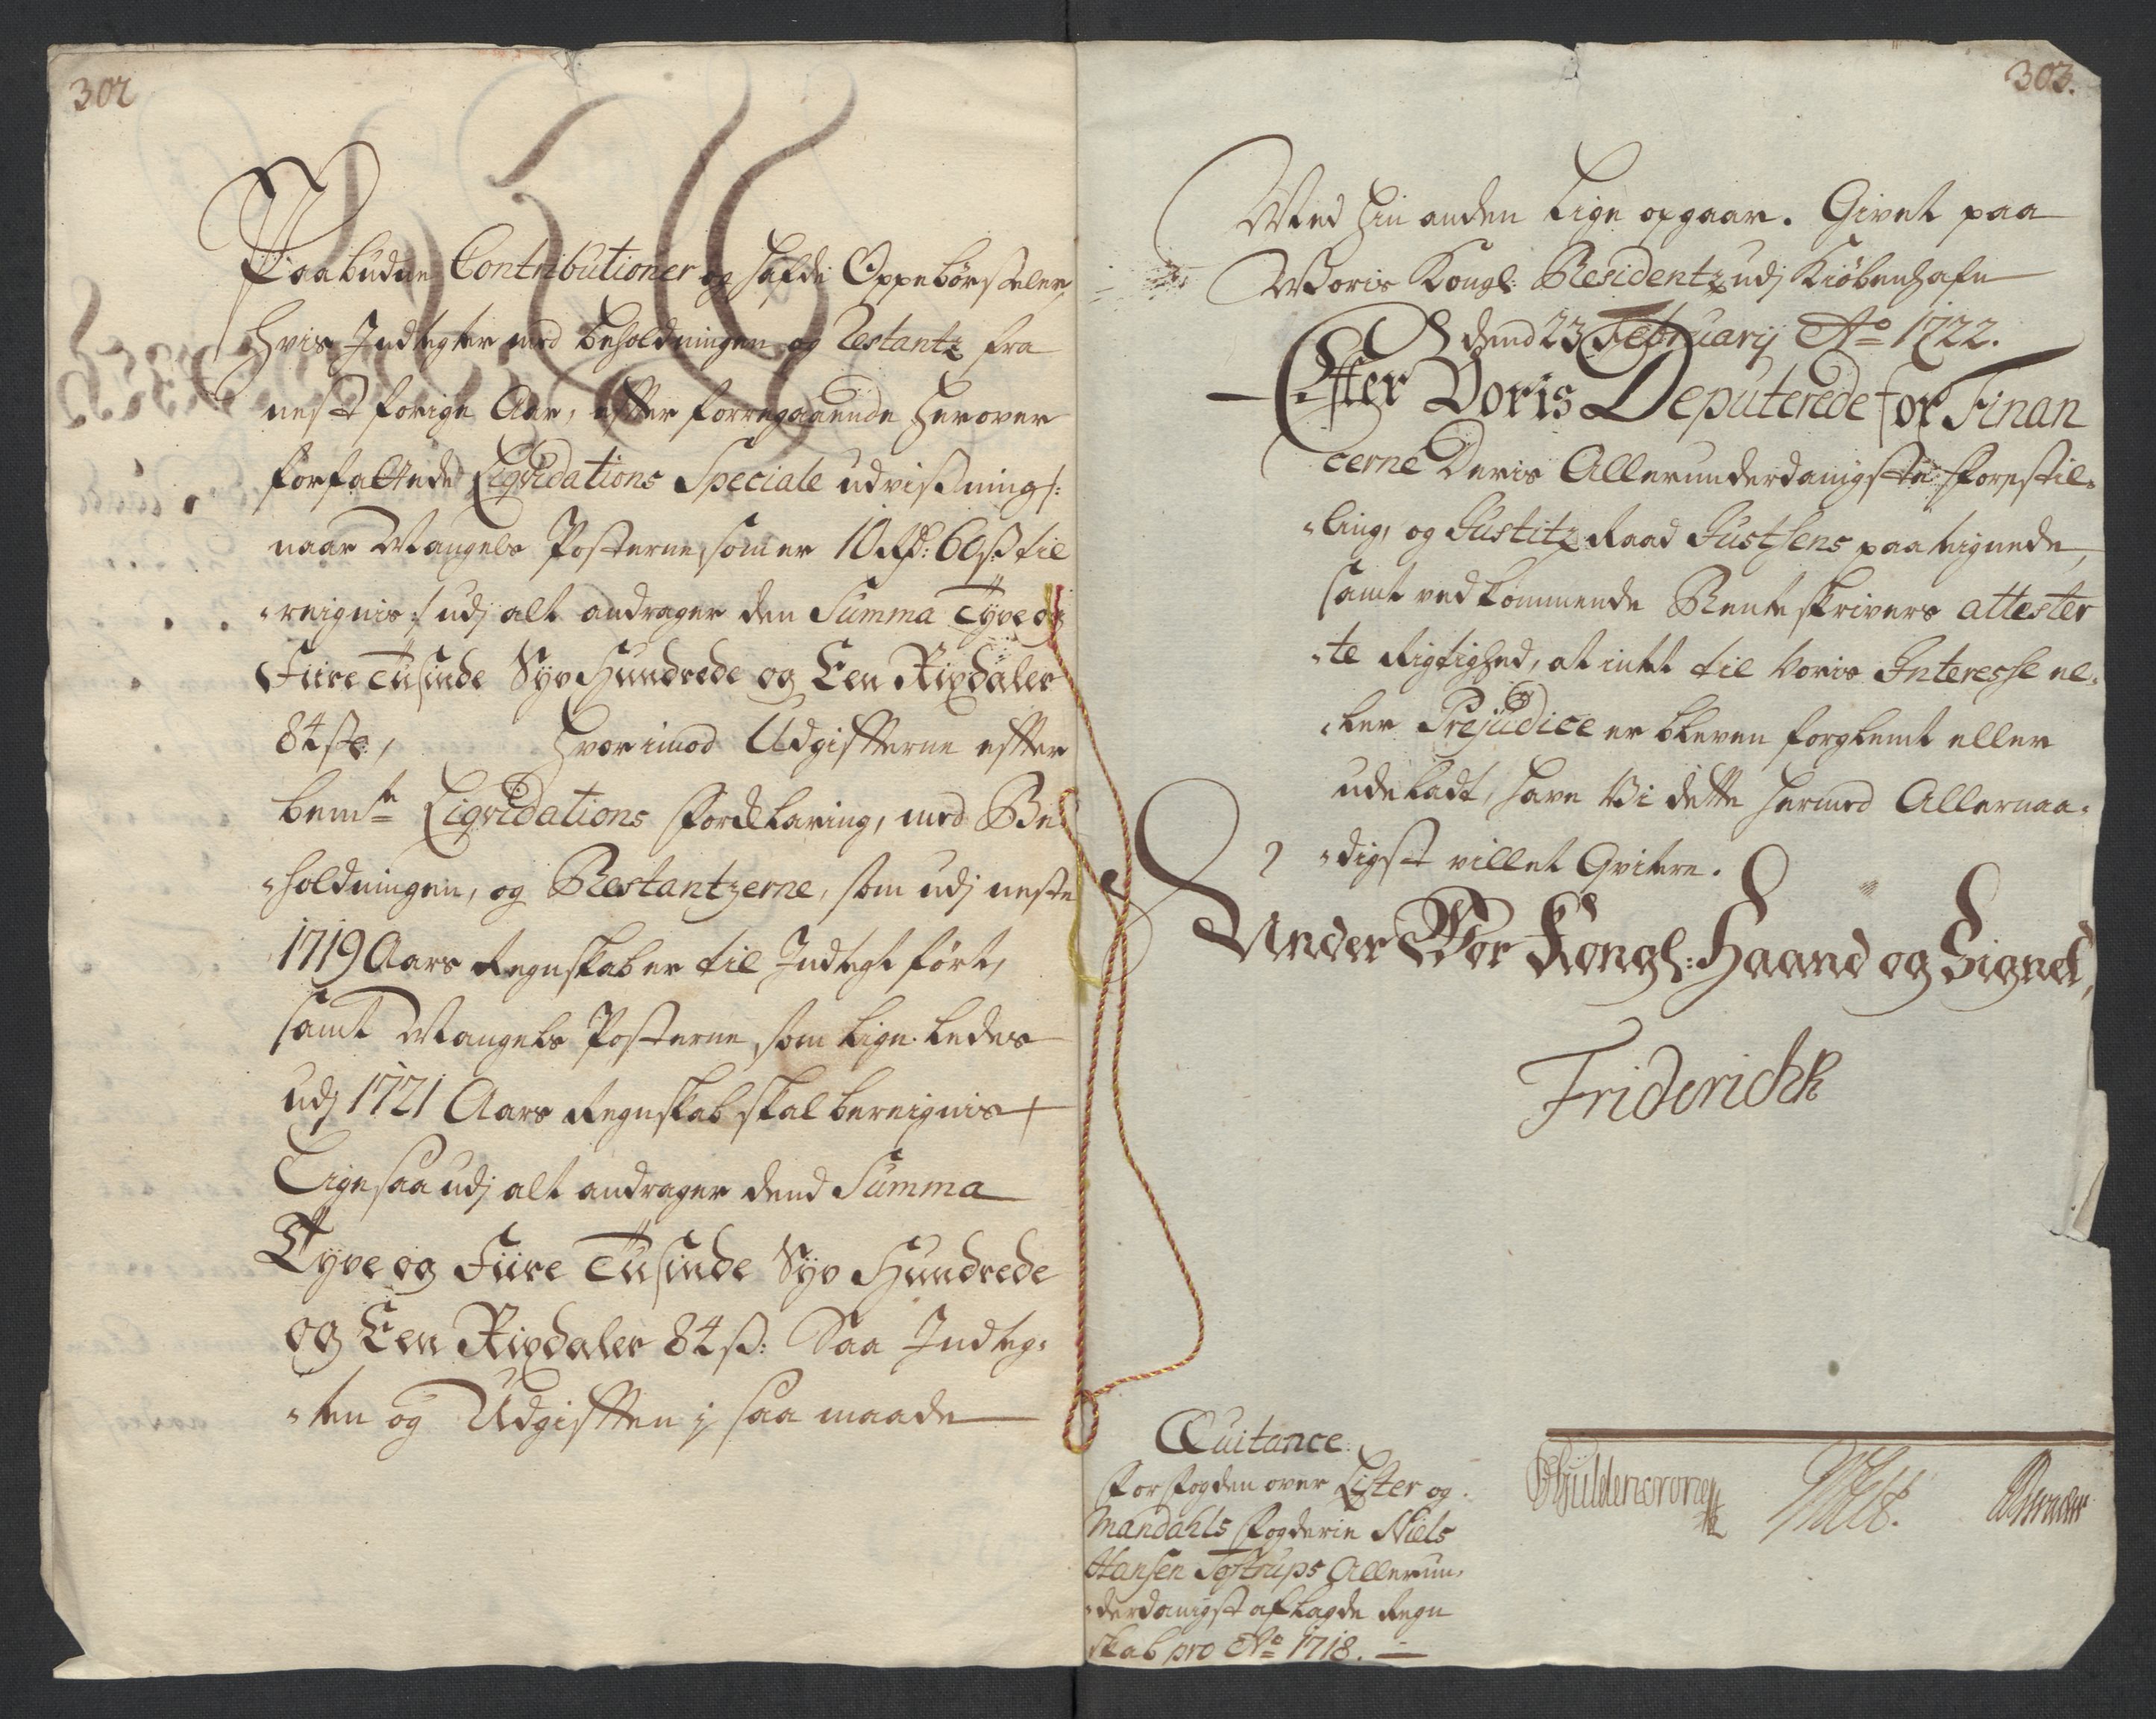 302
Paabudne Contributioner og hafde Oppebørsteler,
hvis Indtegter med beholdningen og Restantz fra
nest forige Aar, efter forregaaende herover
forfattede Liqvidations Speciale udvisning /:
naar Mangels Posterne, som er 10 Rd: 60 s. til
reignis :/ udj alt andrager den Summa Tyve og
Fiire Tusinde Syv Hundrede og Een Rixdaler
84 s, hvorimod Udgifterne efter
bemte Liqvidations Forklaring, med Be
holdningen, og Restantzerne, som udj neste
1719 Aars Regnskab er til Indtegt ført,
samt Mangels Posterne, som lige ledes
udj 1721 Aars Regnskab skal bereignis
Ligesaa udj alt andrager dend Summa
Tyve og Fiire Tusinde Syv Hundrede
og Een Rixdaler 84 s: Saa Indteg-
ten og Udgiften j saa maade
303.
Med hin anden lige opgaar. Givet paa
Woris Kongl: Residentz udj Kiöbenhafn
dend 23 February Ao 1722.
Efter Voris Deputerede for Finan
cerne Deris Allerunderdanigste Forestil-
ling, og Justitz Raad Justsens paategnede,
samt vedkommende Renteskrivers attester
te Rigtighed, at intet til Voris Interesse el-
ler Prejudice er bleven forglemt eller
udeladt, have Vi dette hermed Allernaa-
digst villet Qvitere.
Under Vor Kongl: Haand og Signet,
Friderich R
CGuldencrone
Qvitance
For Fogden over Lister og
Mandahls Fogderie Niels
Hansen Tostrups Allerun-
derdanigst aflagde Regn
skab pro Ao 1718.